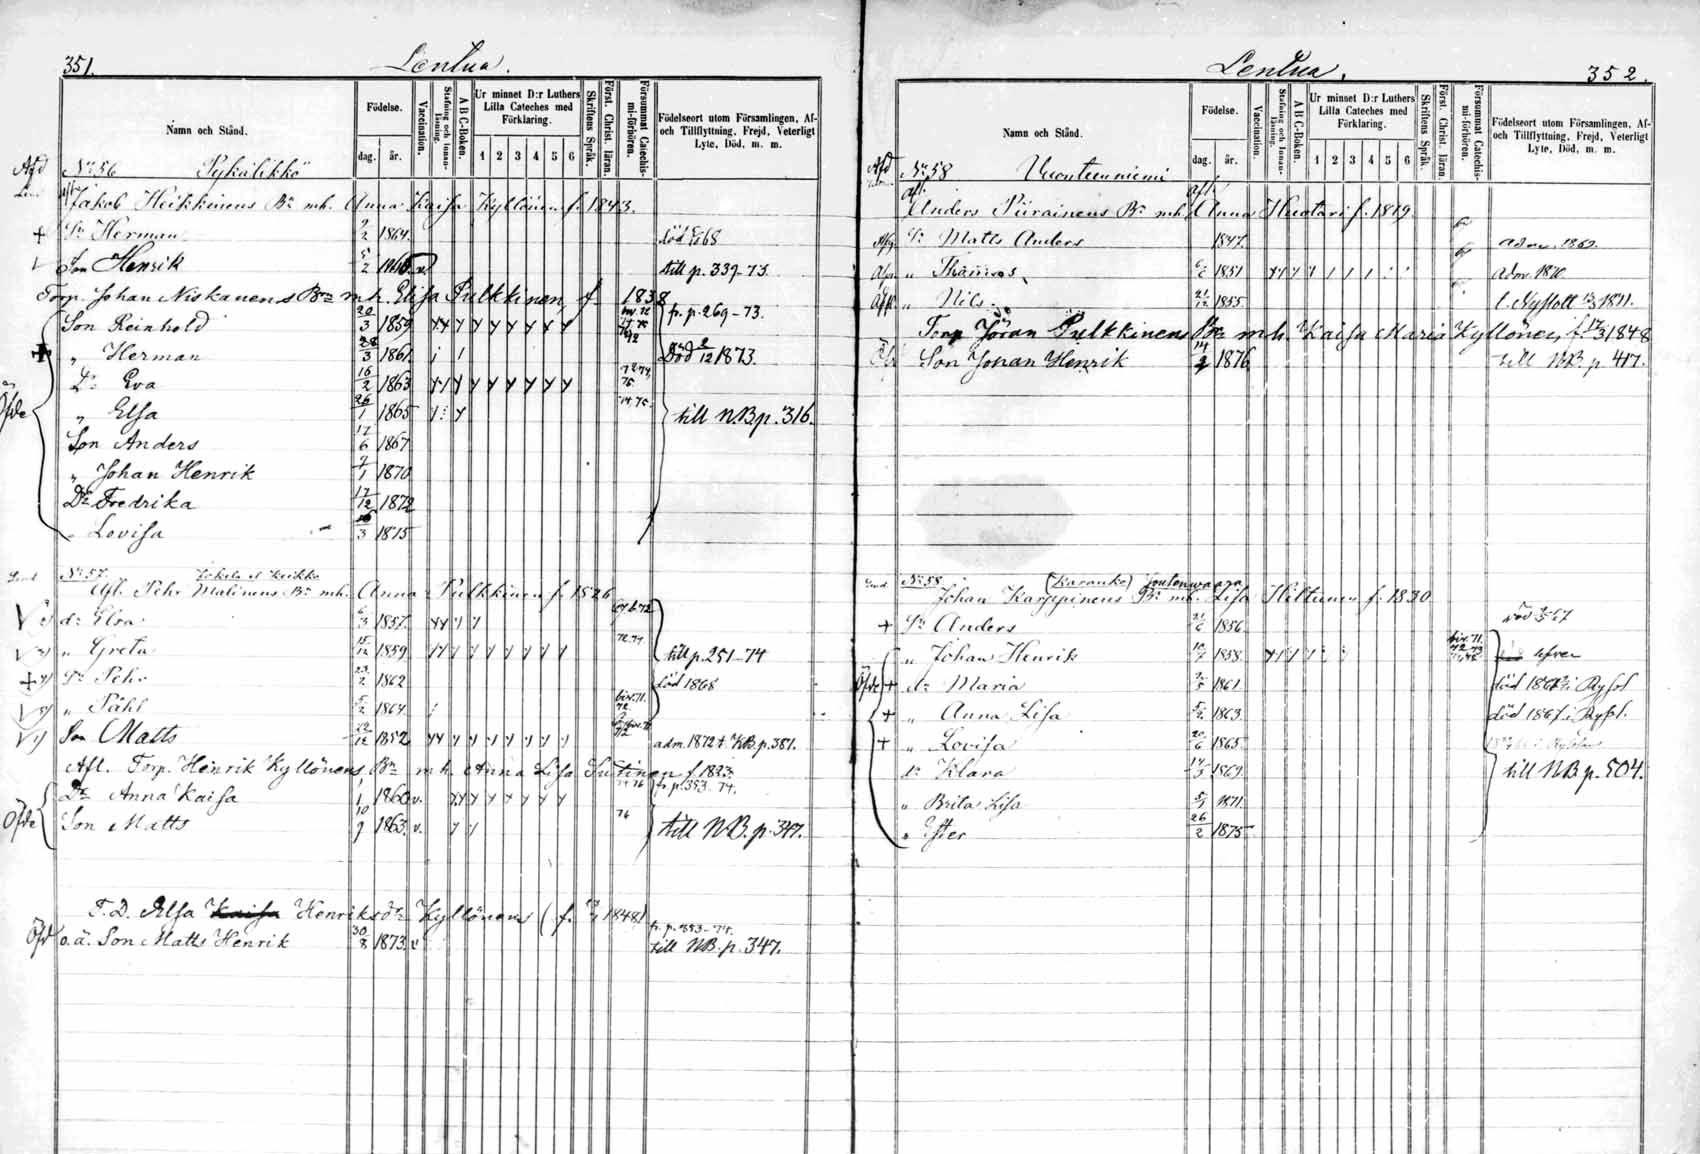 351.
Lentua.
Namn och Stånd.
Födelse.
dag. år.
Vaccination.
Stafning och Innanläsning.
A B C-Boken.
Ur minnet D:r Luthers Lilla Cateches med Förklaring.
1 2 3 4 5 6
Skriftens Språk.
Först. Christ. läran.
Försummat Catechismi-förhören.
Födelseort utom Församlingen, Af- och Tillflyttning, Frejd, Veterligt Lyte, Död, m. m.
No 56 Pykälikkö
Jakob Heikkinens Bn mh. Anna Kaisa Kyllönen f. 1843.
Sn Herman 2 1864. död 68
Son Henrik 5/2 v. till p. 339-73.
Torp. Johan Niskanens Bn m h. Elisa Pulkkinen f 1838
Son Reinhold 20/3 1859 fr. p. 269-73.
" Herman 28/3 1861. Död 2/12 1873.
Dr Eva 16/2 1863
Öfde " Elsa 26/1 1865 till NB p. 316.
Son Anders 17/6 1867
" Johan Henrik 7/1 1870
Dr Fredrika 17/12 1872
" Lovisa 3 1875
No 57.
Afl. Pehr Malinens Bn mh. Anna Pulkkinen f. 1826
dr Elsa 6/3 1857.
" Greta 15/12 1859 72.74 till p. 251-74
Sn Pehr 23/2 1862 död 1868
" Påhl 5/2 1864
Son Matts 12/12 1852 adm. 1872 KB. p. 381.
Afl. Torp. Henrik Kyllönens Bn m h. Anna Lisa f. 1823.
fr. p. 353-74.
Dr Anna Kaisa 1/1 1860 v.
Öfde Son Matts 10/9 1863 v. 76 till NB. p. 347.
T. D. Elsa Kaisa Henriksdr Kyllönens (f. 1848)
fr. p. 353-74.
Öfd o.ä. Son Matts Henrik 30/8 1873 v till NB. p. 347.
Lentua.
352.
Namn och Stånd.
Födelse.
dag. år.
Vaccination.
Stafning och Innanläsning.
A B C-Boken.
Ur minnet D:r Luthers Lilla Cateches med Förklaring.
1 2 3 4 5 6
Skriftens Språk.
Först. Christ. läran.
Försummat Catechismi-förhören.
Födelseort utom Församlingen, Af- och Tillflyttning, Frejd, Veterligt Lyte, Död, m. m.
No 58 Vuonteenniemi
Anders Piirainens Bn mh. Anna Huotari f. 1819.
Sn Matts Anders 1847. adm. 1869.
" Thomas 1851 adm. 1870
" Nils 21/12 1855 t. Nyslott 1871.
Torp Jöran Pulkkinens Bn m h. Kaisa Maria Kyllönen f. 17/3 1848
Son Johan Henrik 1876 till NB. p. 417.
No 58 (Karanko) Joutenvaara
Johan Karppinens Bn mh. Lisa Hiltunen f. 1830
Sn Anders 1856 död 67
" Johan Henrik 1858
Öfde dr Maria 1861 död i Rysl
" Anna Lisa 5/2 1863 död 1867 i Rysl.
" Lovisa 20/6 1865
dr Klara 1869 till NB p. 504.
" Brita Lisa 1871
" Ester 26/2 1875